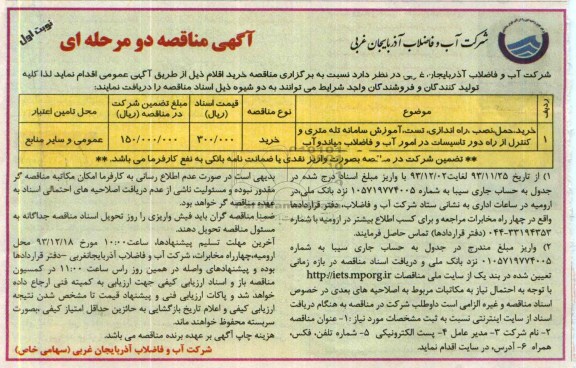 نوبت اول
آگهی مناقصه دو مرحله ای
شرکت آب و فاضلاب آذربایجان غربی
شرکت آب و فاضلاب آذربایجان غربی در نظر دارد نسبت به برگزاری مناقصه خرید اقلام ذیل از طریق آگهی عمومی اقدام نماید لذا کلیه
تولید کنندگان و فروشندگان واجد شرایط می توانند به دو شیوه ذیل اسناد مناقصه را دریافت نمایند:
ردیف موضوع نوع مناقصه قیمت اسناد (ریال) مبلغ تضمین شرکت در مناقصه (ریال) محل تامین اعتبار
۱ خرید،حمل،نصب ،راه اندازی، تست،آموزش سامانه تله متری و کنترل از راه دور تاسیسات در امور آب و فاضلاب میاندوآب خرید ۳۰۰/۰۰۰ ۱۵۰/۰۰۰/۰۰۰ عمومی و سایر منابع
** تضمین شرکت در مناقصه بصورت واریز نقدی یا ضمانت نامه بانکی به نفع کارفرما می باشد. **
۱) از تاریخ ۹۳/۱۱/۲۵ لغایت ۹۳/۱۲/۰۲ با واریز مبلغ اسناد درج شده در
جدول به حساب جاری سیبا به شماره ۰۱۰۵۷۱۹۷۷۴۰۰۵ نزد بانک ملی،در
ارومیه در ساعات اداری به نشانی ستاد شرکت آب و فاضلاب، دفتر قراردادها
واقع در چهار راه مخابرات مراجعه و برای کسب اطلاع بیشتر در ارومیه با شماره
۰۴۴-۳۳۱۹۴۳۵۳ (دفتر قراردادها) تماس حاصل فرمایند.
۲) واریز مبلغ مندرج در جدول به حساب جاری سیبا به شماره
۰۱۰۵۷۱۹۷۷۴۰۰۵ نزد بانک ملی و دریافت اسناد مناقصه در بازه زمانی
تعیین شده در بند یک از سایت ملی مناقصات http://iets.mporg.ir
با توجه به احتمال نیاز به مکاتبات مربوط به اصلاحیه های بعدی در خصوص
اسناد مناقصه و غیره الزامی است داوطلب شرکت در مناقصه به هنگام دریافت
اسناد از سایت اینترنتی نسبت به ثبت مشخصات مورد نیاز :۱- عنوان مناقصه
۲- نام شرکت ۳- مدیر عامل ۴- پست الکترونیکی ۵- شماره تلفن، فکس،
همراه ۶- آدرس، در سایت اقدام نماید.
بدیهی است در صورت عدم اطلاع رسانی به کارفرما امکان مکاتبه مناقصه گر
مقدور نبوده و مسئولیت ناشی از عدم دریافت اصلاحیه های احتمالی اسناد به
عهده مناقصه گر خواهد بود.
ضمنا مناقصه گران باید فیش واریزی را روز تحویل اسناد مناقصه جداگانه به
مسئول مناقصه تحویل دهند.
آخرین مهلت تسلیم پیشنهادها، ساعت ۱۰:۰۰ مورخ ۹۳/۱۲/۱۸ محل
ارومیه،چهارراه مخابرات، شرکت آب و فاضلاب آذربایجانغربی –دفتر قراردادها
بوده و پیشنهادهای واصله در همین روز راس ساعت ۱۱:۰۰ در کمسیون
مناقصه باز و اسناد ارزیابی کیفی جهت ارزیابی به کمیته فنی ارجاع داده
خواهد شد و پاکات ارزیابی فنی و پیشنهاد قیمت تا مشخص شدن نتیجه
ارزیابی کیفی و اعلام تاریخ بازگشایی به حائزین حداقل امتیاز کیفی ،بصورت
سربسته محفوظ خواهند ماند.
هزینه چاپ آگهی بر عهده برنده مناقصه می باشد.
شرکت آب و فاضلاب آذربایجان غربی (سهامی خاص)